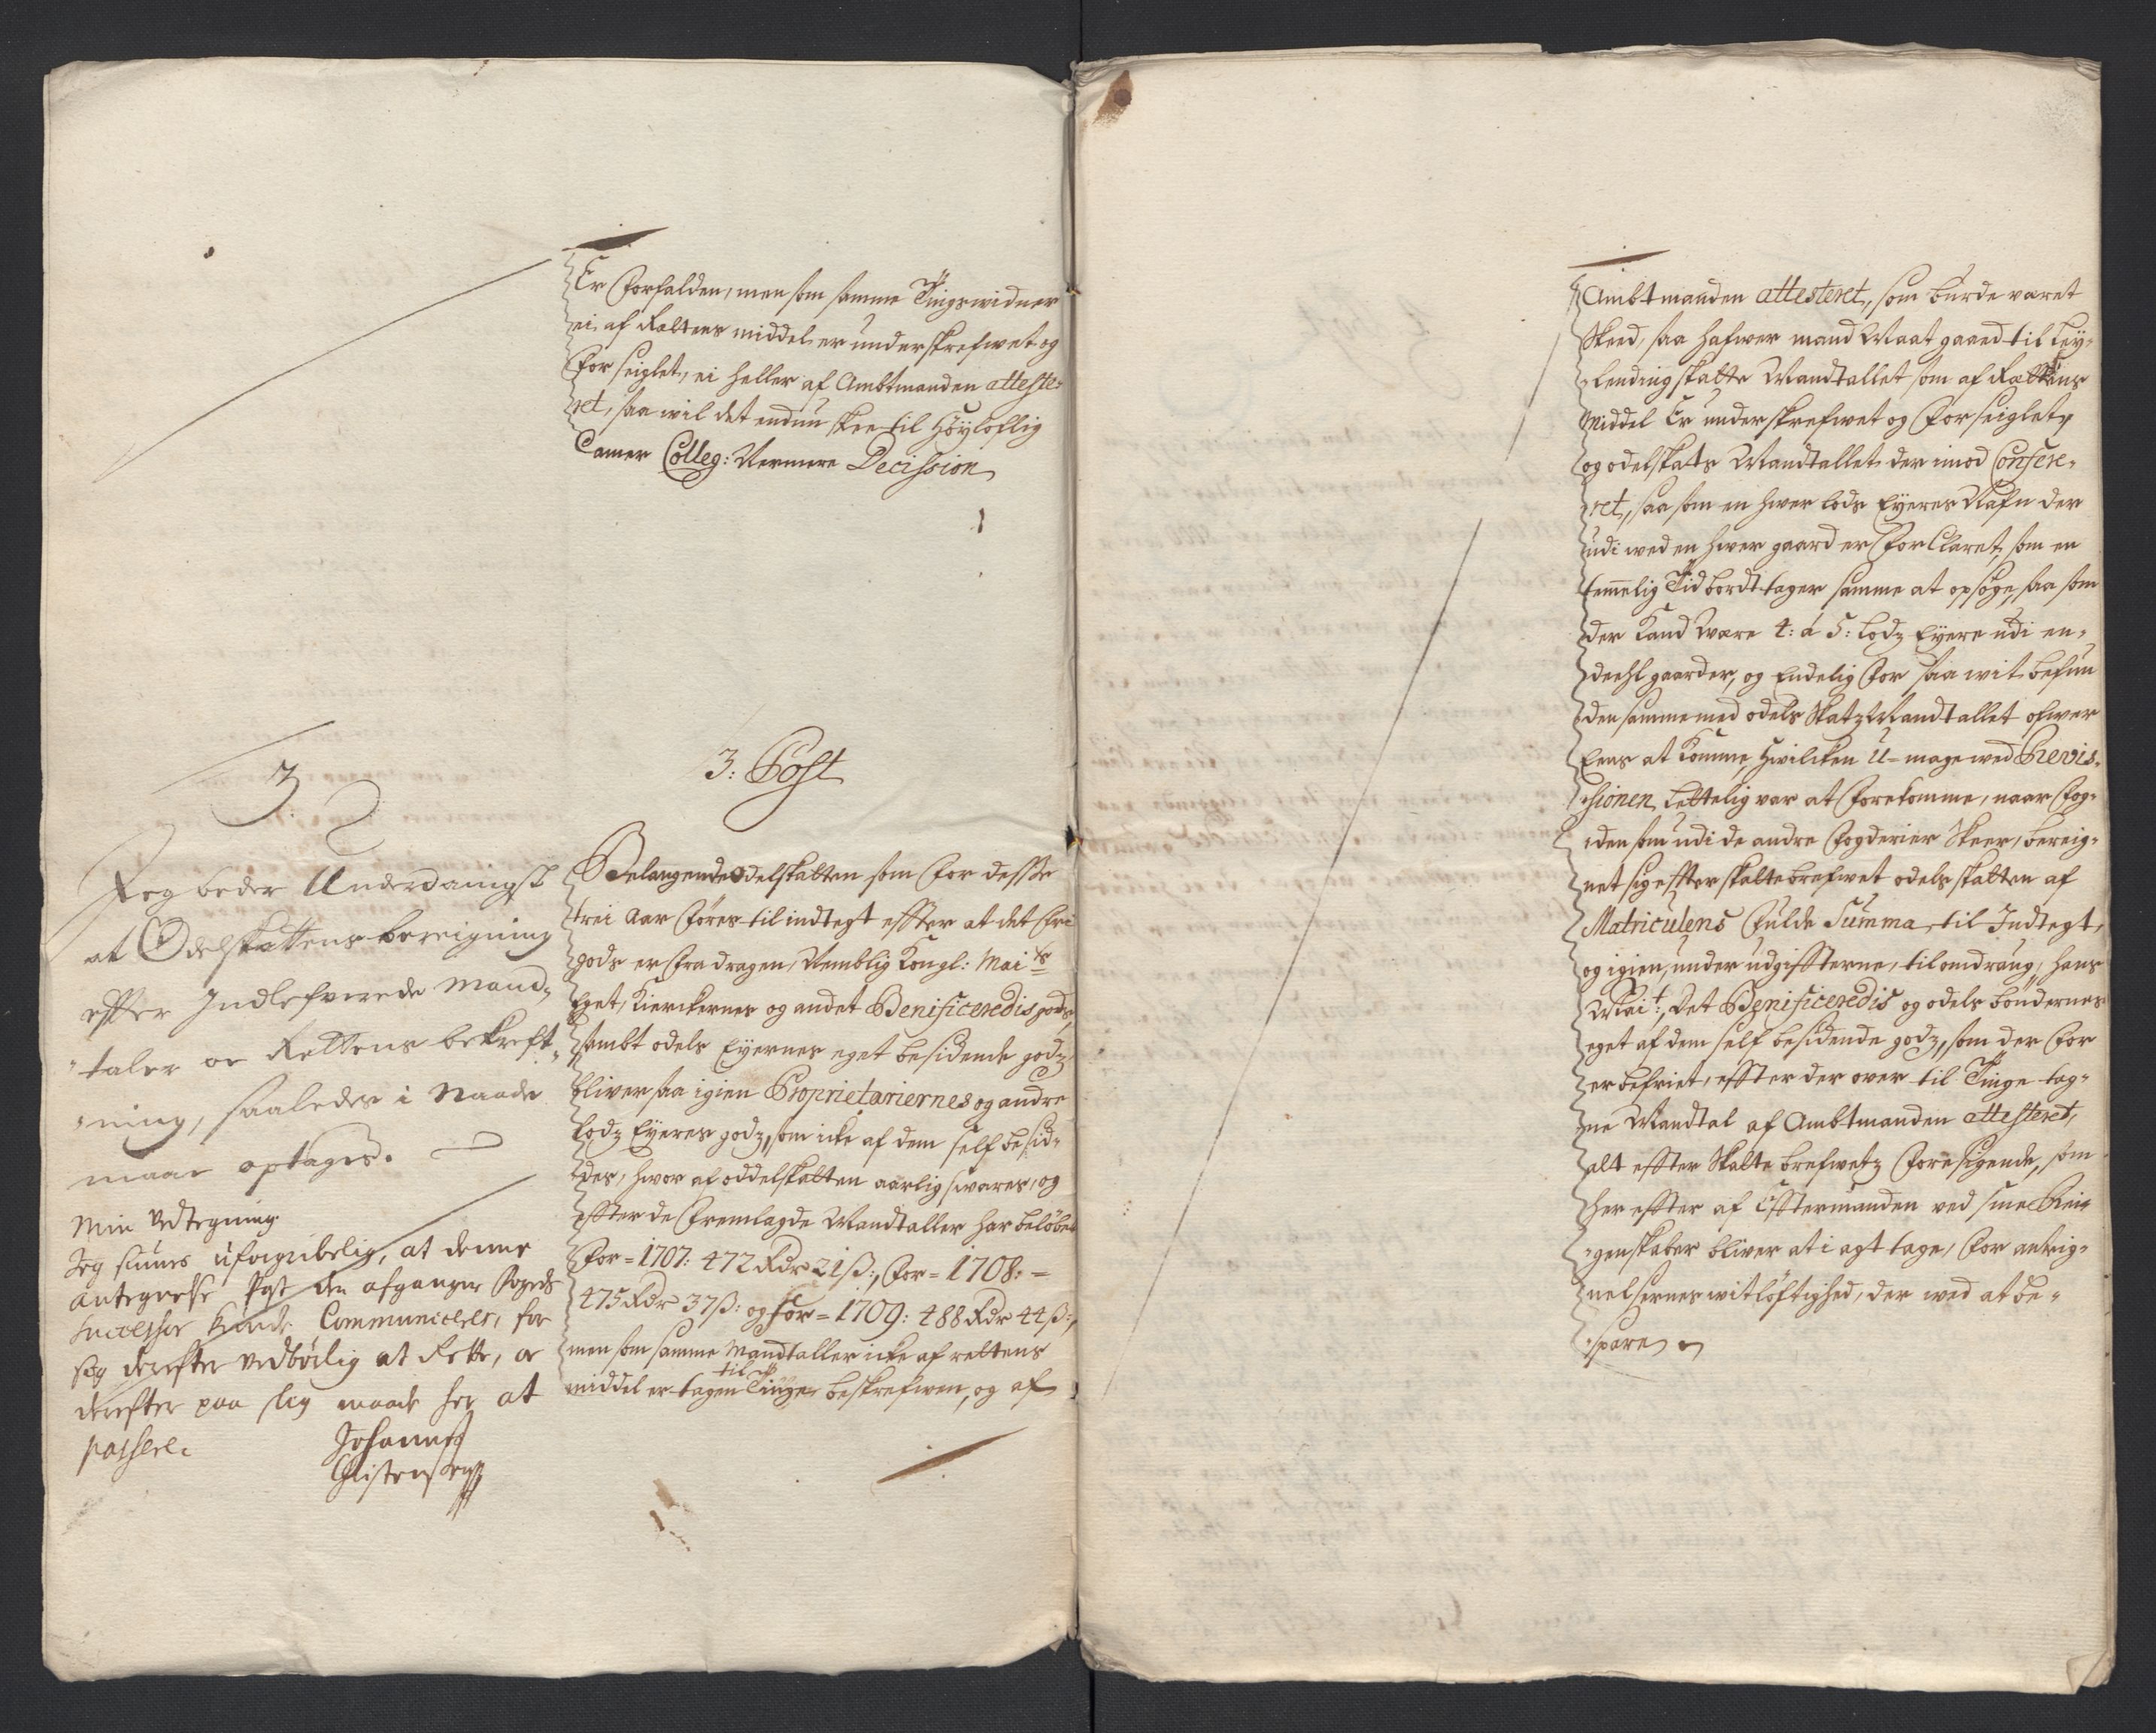 Er Forfalden, men som samme Tingswidner
ei af Rettens middel er underskrefwet og
Forseiglet, ei heller af Ambtmanden atteste-
ret, saa wil det endnu skee til Höyloflig
Camer Colleg: Nermere Decission
3
Jeg beder Underdanigst
at Odelskattens bereigning
effter Indlefwerede Mand-
taler oc Rettens bekreft-
ning, saaledes i Naade
maae optages.
Min Vedtegning
Jeg siunes uforgribelig, at denne
Antegnelse Post den afgangne Fogeds
Successor kunde Communiceris, for
sig derefter vedbörlig at Rette, oc
derefter paa slig maade her at
passere.
Johannes
Christensen
3: Post
Belangende odelskatten som for desse
trei Aar Föres til indtegt effter at det Frie
gods er Fradragen, Nemblig Kongl: Maits
Eget, Kierckernes og andet Benificeredis gods,
sambt odels Eyernes eget besidende godz
bliver saa igien Proprietariernes og andre
Lodz Eyeres godz, som icke af dem self besid-
des, hwor af oddelskatten aarlig swares, og
effter de Fremlagde Mandtaller har belöbet
For = 1707: 472 Rdr 21 ß:, For = 1708: =
475 Rdr 37 ß: og For = 1709: 488 Rdr 44 ß:,
men som samme Mandtaller icke af rettens
middel er tagen til Tinge beskrefwen, og af
Ambtmanden attesteret, som burde været
Skeed, saa hafwer mand Maat gaaed til Ley-
lending skatte Mandtallet som af Rættens
Middel Er underskrefwet og Forseiglet,
og odelskats Mandtallet der imod Confere-
ret, saa som en hwer Lods Eyeres Nafn der
udi wed en hwer gaard er ForClaret, som en
temmelig Tid bordt tager samme at opsöge, saa som
der Kand Wære 4: á 5: Lodz Eyere udi en-
deehl gaarder, og Endelig For saa wit befun
den samme med odels Skatz Mandtallet ofwer
Eens at Komme, hwilcken U-mage wed Revis-
sionen Lettelig var at Forekomme, naar Fog-
den som udi de andre Fogderier Skeer, bereig-
net sig effter skattebrefwet odels skatten af
Matriculens Fulde Summa til Indtegt,
og igien, under udgiffterne, til omdraug, hans
Mait:, Det Benificeredis og odels böndernes
eget af dem self besidende godz, som der For
er befriet, effter der over til Tinge tag-
ne Mandtal af Ambtmanden attesteret,
alt effter Skatte brefwetz Foresigende, som
her effter af Efftermanden ved sine Rein-
genskaber bliver at i agt tage, For antig-
nelsernes witlöftighed, der wed at be-
spare